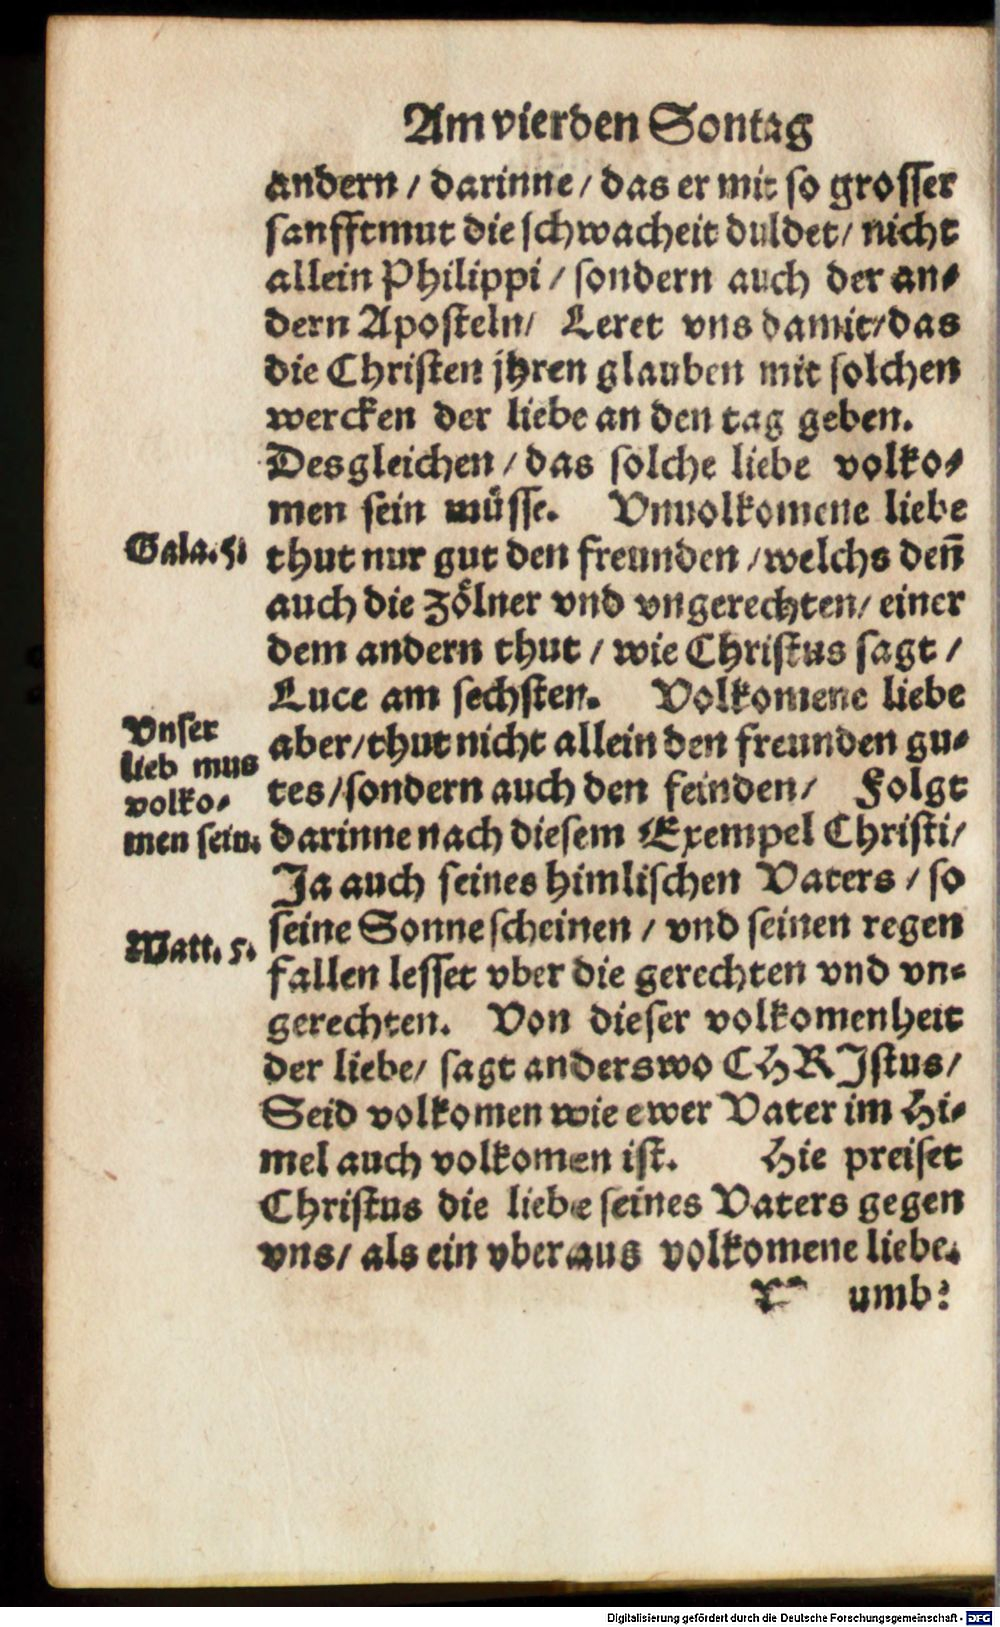 Am vierden Sontag
andern / darinne / das er mit so grosser
sanfftmut die schwacheit duldet / nicht
allein Philippi / sondern auch der an-
dern Aposteln / Leret vns damit / das
die Christen jhren glauben mit solchen
wercken der liebe an den tag geben.
Desgleichen / das solche liebe volko-
men sein müsse. Vnuolkomene liebe
Gala. 5.
thut nur gut den freunden / welchs deñ
auch die zölner vnd vngerechten / einer
dem andern thut / wie Christus sagt /
Luce am sechsten. Volkomene liebe
Vnser
lieb mus
volko-
men sein.
aber / thut nicht allein den freunden gu-
tes / sondern auch den feinden / Folgt
darinne nach diesem Exempel Christi /
Ja auch seines himlischen Vaters / so
Matt. 5.
seine Sonne scheinen / vnd seinen regen
fallen lesset vber die gerechten vnd vn-
gerechten. Von dieser volkomenheit
der liebe / sagt anderswo CHRIstus /
Seid volkomen wie ewer Vater im Hi-
mel auch volkomen ist. Hie preiset
Christus die liebe seines Vaters gegen
vns / als ein vberaus volkomene liebe.
umb:
Digitalisierung gefördert durch die Deutsche Forschungsgemeinschaft - DFG